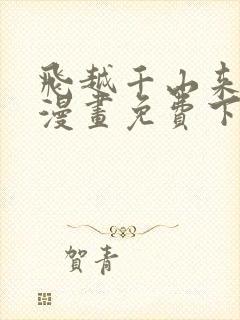 飛越千山来
漫畫免費下
賀青